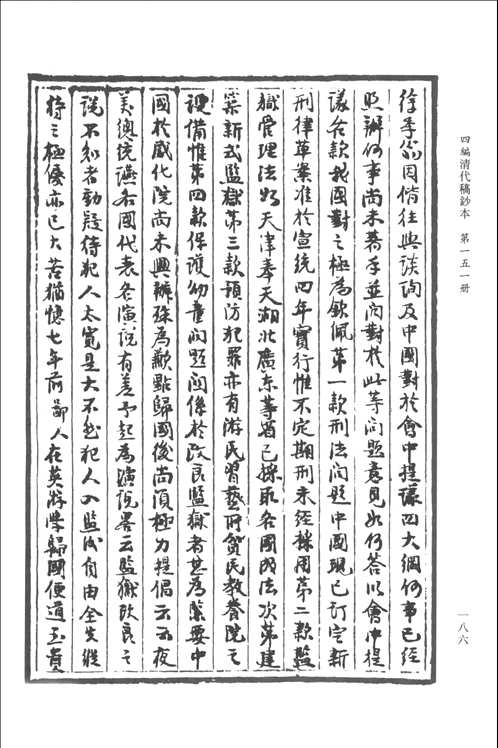 四編清代稿鈔本　第一五一册
一八六
徐季翁因偕往與談詢及中國對於會中提議四大綱何事已經
照辦何事尚未著手並問對於此等問題意見如何答以會中提
議各款我國對之極為欽佩第一款刑法問題中國現已訂定新
刑律草案准於宣統四年實行惟不定期刑未經採用第二款監
獄管理法如天津奉天湖北廣東等省已採取各國成法次第建
築新式監獄第三款預防犯罪亦有游民習藝所貧民教養院之
設備惟第四款保護幼童問題關係於改良監獄者甚為緊要中
國於感化院尚未興辦殊為歉點歸國後尚須極力提倡云云夜
美總統讌各國代表各演說有差予起為演說畧云監獄改良之
說不知者動疑待犯人太寬是大不然犯人入監後自由全失縱
待之極優亦已大苦猶憶七年前鄙人在英游學歸國便道至貴